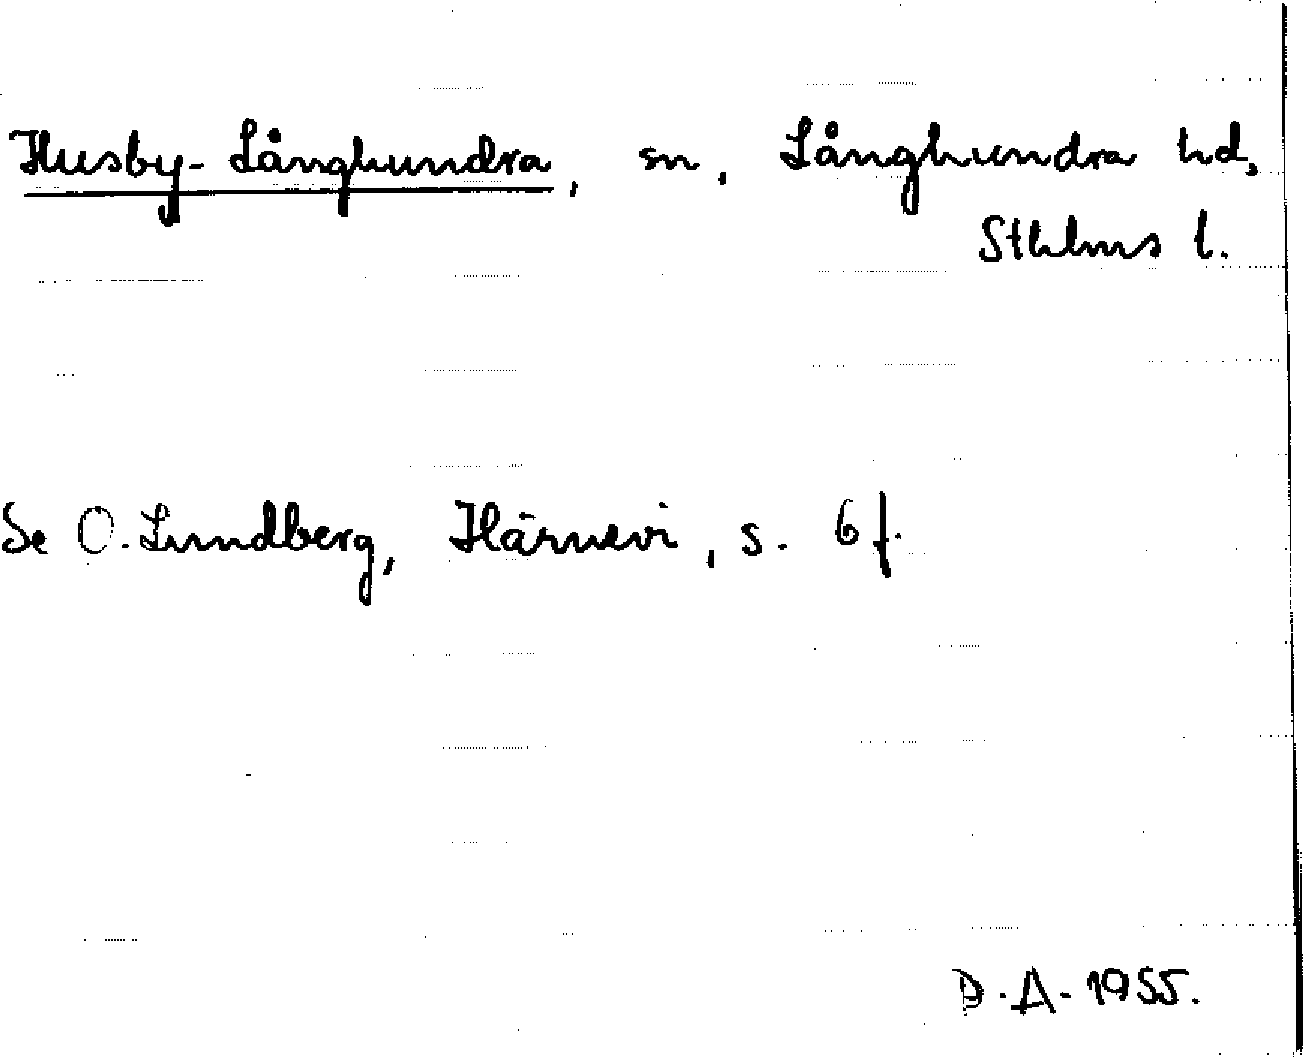 Husby-Långhundra, sn, Långhundra hd,
Sthlms l.
Se O. Lundberg, Härnevi, s. 6 f.
D.A. 1955.